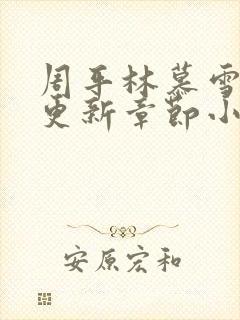 周平林慕雪
更新章节小
安原宏和